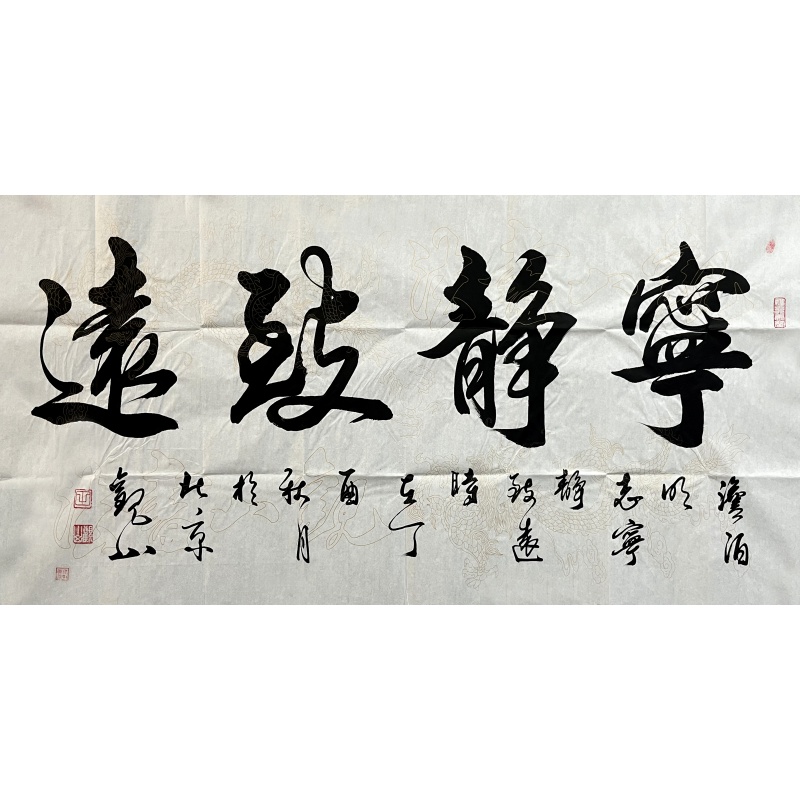 寧靜致遠
澹泊
明
志寧
靜
致遠
時
在丁
酉
秋月
於
北京
觀山